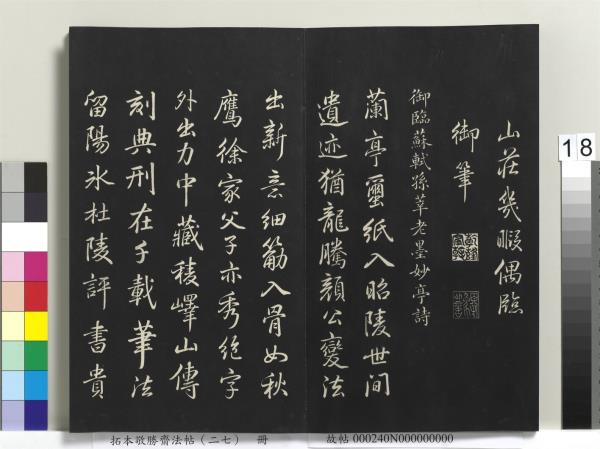 山莊幾暇偶臨
御筆
御臨蘇軾孫莘老墨妙亭詩
蘭亭蠒紙入昭陵世間
遺迹猶龍騰顏公變法
出新意細筋入骨如秋
鷹徐家父子亦秀絕字
外出力中藏稜嶧山傳
刻典刑在千載筆法
留陽冰杜陵評書貴
18
拓本敬勝齋法帖（二七） 冊
故帖 000240N000000000